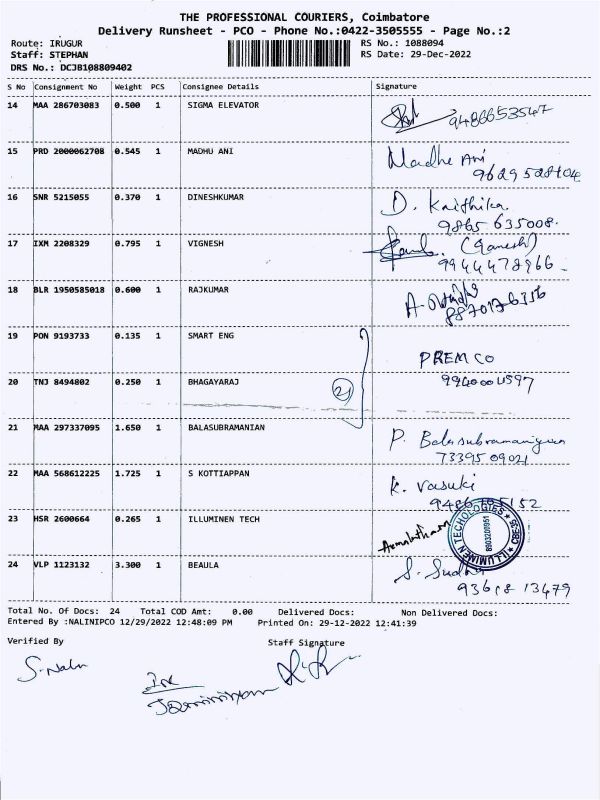 THE PROFESSIONAL COURIERS, Coimbatore
Delivery Runsheet - PCO - Phone No.:0422-3505555 - Page No.:2
Route: IRUGUR RS No.: 1088094
Staff: STEPHAN RS Date: 29-Dec-2022
DRS No.: DCJB108809402
S No Consignment No Weight PCS Consignee Details Signature
14 MAA 286703083 0.500 1 SIGMA ELEVATOR 9486653547
15 PRD 2000062708 0.545 1 MADHU ANI Madhe Ani
9629528404
16 SNR 5215055 0.370 1 DINESHKUMAR D. Kaithika
9865 635008.
17 IXM 2208329 0.795 1 VIGNESH (Ganesh)
9944478966
18 BLR 1950585018 0.600 1 RAJKUMAR
8870176356
19 PON 9193733 0.135 1 SMART ENG PREMCO
20 TNJ 8494802 0.250 1 BHAGAYARAJ 21
21 MAA 297337095 1.650 1 BALASUBRAMANIAN P. Balasubramaniyan
7339509021
22 MAA 568612225 1.725 1 S KOTTIAPPAN K. Vasuki
23 HSR 2600664 0.265 1 ILLUMINEN TECH
ILLUMINEN TECHOLOGIES
24 VLP 1123132 3.300 1 BEAULA S. Sudha
Total No. Of Docs: 24 Total COD Amt: 0.00 Delivered Docs: Non Delivered Docs:
Entered By :NALINIPCO 12/29/2022 12:48:09 PM Printed On: 29-12-2022 12:41:39
Verified By Staff Signature
S. Nalu